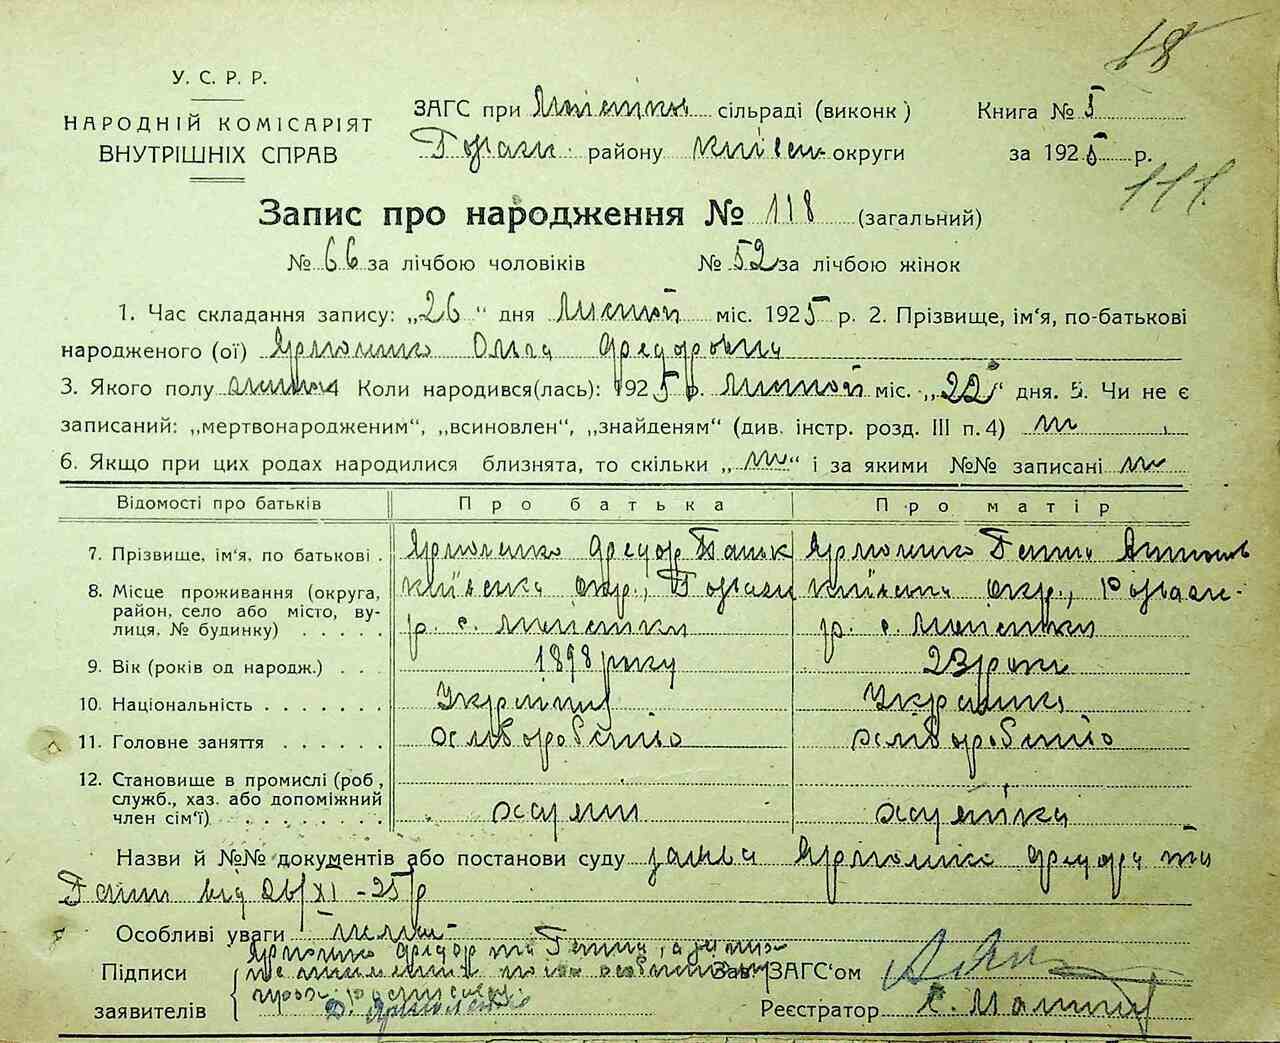 18
У. С. Р. Р.
НАРОДНІЙ КОМІСАРІЯТ
ВНУТРІШНІХ СПРАВ
ЗАГС при сільраді (виконк)
району київськ округи
Книга № 5
за 1925 р.
111.
Запис про народження № 118 (загальний)
№ 66 за лічбою чоловіків № 52 за лічбою жінок
1. Час складання запису: „26“ дня листопада міс. 1925 р. 2. Прізвище, ім'я, по-батькові
народженого (ої) Ярмоленко Ольга Федоровна
3. Якого полу Коли народився(лась): 1925 р. міс. „22“ дня. 5. Чи не є
записаний: „мертвонародженим“, „всиновлен“, „знайденям“ (див. інстр. розд. III п. 4) ні
6. Якщо при цих родах народилися близнята, то скільки „ні“ і за якими №№ записані ні
Відомості про батьків Про батька Про матір
7. Прізвище, ім'я, по батькові Ярмоленко Федор Ярмоленко Ганна
8. Місце проживання (округа, район, село або місто, вулиця, № будинку) Київська окр., Київська окр.,
р. с. р. с.
9. Вік (років од народж.) 1898 року 23 роки
10. Національність Українець Українка
11. Головне заняття хліборобство хліборобство
12. Становище в промислі (роб, служб., хаз. або допоміжний член сім'ї) хазяїн хазяйка
Назви й №№ документів або постанови суду заява Ярмоленко Федора та
Ганни від 26/XI-25 р
Особливі уваги немає
Підписи заявителів Ярмоленко Федор та Ганна, а за них
Ярмоленко
Зав. ЗАГС'ом
Реєстратор